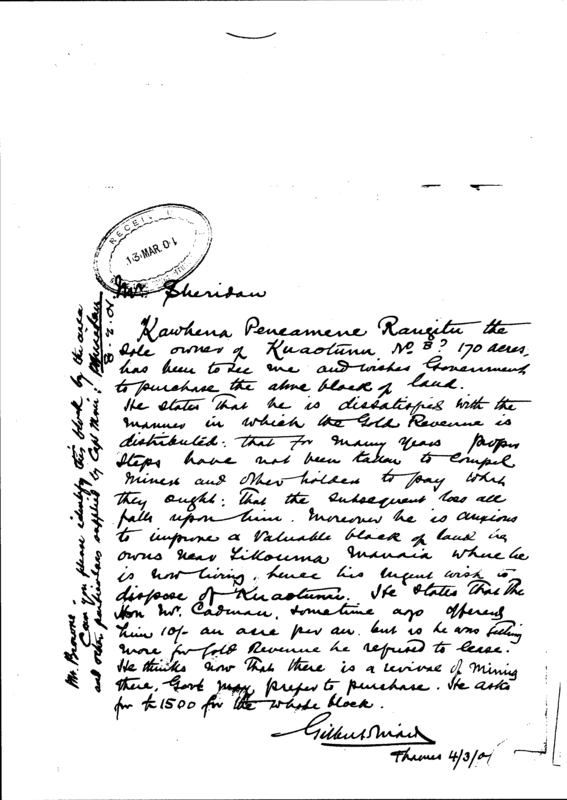 RECEIVED
13 MAR. 01
Mr. Sheridan
Kawhena Peneamene Rangitu the
Sole owner of Kuaotunu No B? 170 acres,
has been to see me and wishes Government
to purchase the above block of land.
He states that he is dissatisfied with the
manner in which the Gold Revenue is
distributed: that for many years proper
steps have not been taken to compel
Miners and other holders to pay what
they ought: that the subsequent loss all
falls upon him. Moreover he is anxious
to improve a valuable block of land he
owns near Manaia where he
is now living, hence his urgent wish to
dispose of Kuaotunu. He states that the
Hon Mr. Cadman, sometime ago offered
him 10/- an acre per an. but as he was getting
more for Gold Revenue he refused to lease.
He thinks now that there is a revival of mining
there, Govt may prefer to purchase. He asks
for £1500 for the whole block.
Gilbert Mair
Thames 4/3/01
Mr. Browne.
Can you please identify this block by the area
and other particulars supplied by Capt Mair?